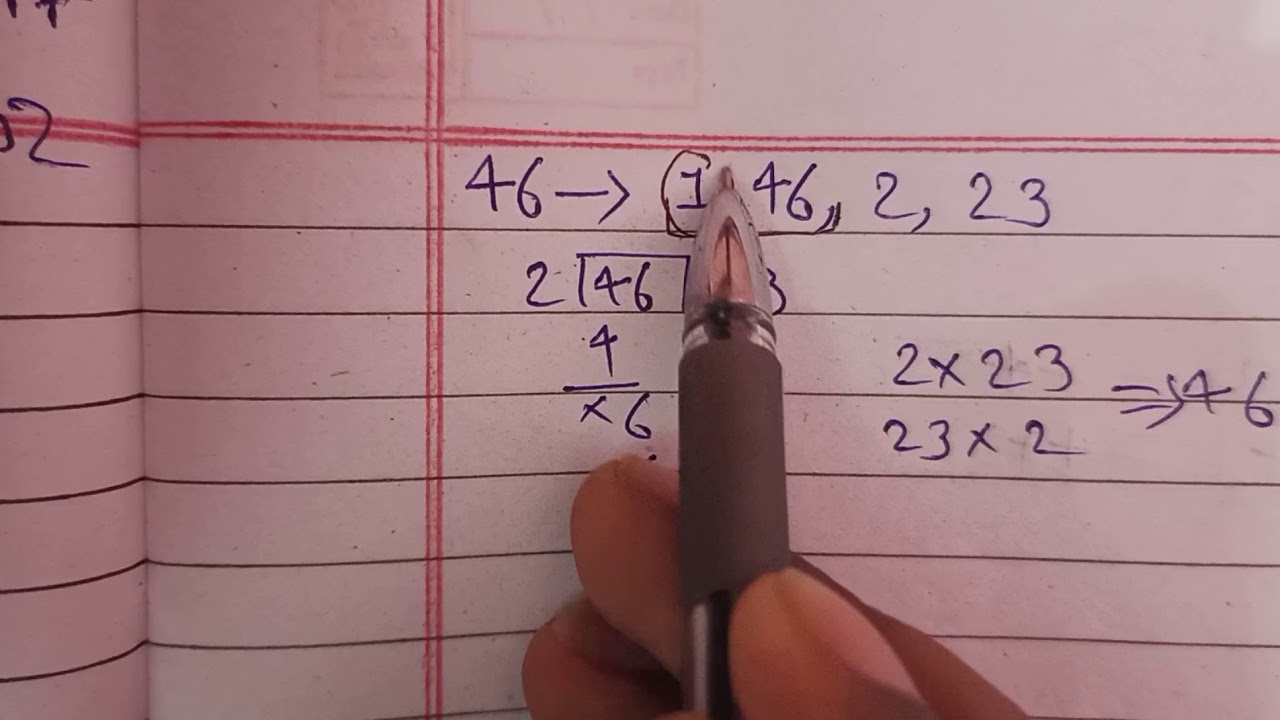 46 → 1 46, 2, 23
2 46 3
4
2 x 23
⇒ 46
x 6
23 x 2